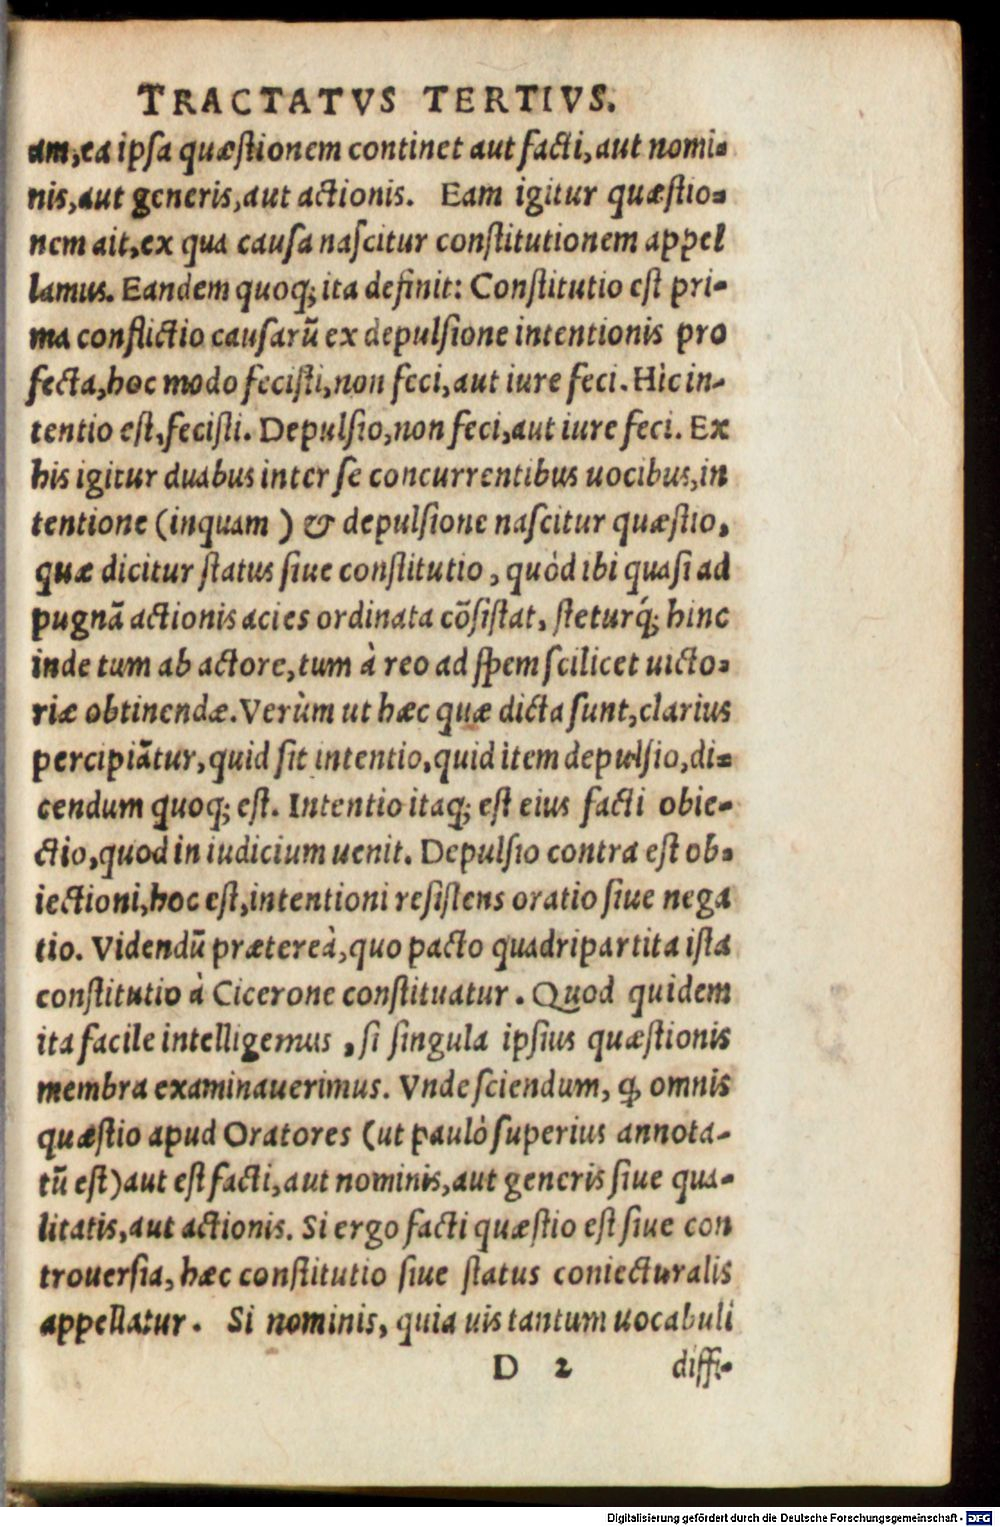 TRACTATVS TERTIVS.
am,ea ipsa quæstionem continet aut facti,aut nomi-
nis,aut generis,aut actionis. Eam igitur quæstio-
nem ait,ex qua causa nascitur constitutionem appel
lamus. Eandem quoq; ita definit: Constitutio est pri-
ma conflictio causarũ ex depulsione intentionis pro
fecta,hoc modo fecisti,non feci,aut iure feci. Hìc in-
tentio est,fecisti. Depulsio,non feci,aut iure feci. Ex
his igitur duabus inter se concurrentibus uocibus,in
tentione (inquam ) & depulsione nascitur quæstio,
quæ dicitur status siue constitutio , quòd ibi quasi ad
pugnã actionis acies ordinata cõsistat, steturq́; hinc
inde tum ab actore,tum à reo ad spem scilicet uicto-
riæ obtinendæ. Verùm ut hæc quæ dicta sunt,clarius
percipiãtur,quid sit intentio,quid item depulsio,di-
cendum quoq; est. Intentio itaq; est eius facti obie-
ctio,quod in iudicium uenit. Depulsio contra est ob-
iectioni,hoc est,intentioni resistens oratio siue nega
tio. Videndũ prætereà,quo pacto quadripartita ista
constitutio à Cicerone constituatur . Quod quidem
ita facile intelligemus , si singula ipsius quæstionis
membra examinauerimus. Vnde sciendum, ꝙ omnis
quæstio apud Oratores (ut paulò superius annota-
tũ est)aut est facti,aut nominis,aut generis siue qua-
litatis,aut actionis. Si ergo facti quæstio est siue con
trouersia, hæc constitutio siue status coniecturalis
appellatur . Si nominis, quia uis tantum uocabuli
D 2 diffi-
Digitalisierung gefördert durch die Deutsche Forschungsgemeinschaft - DFG